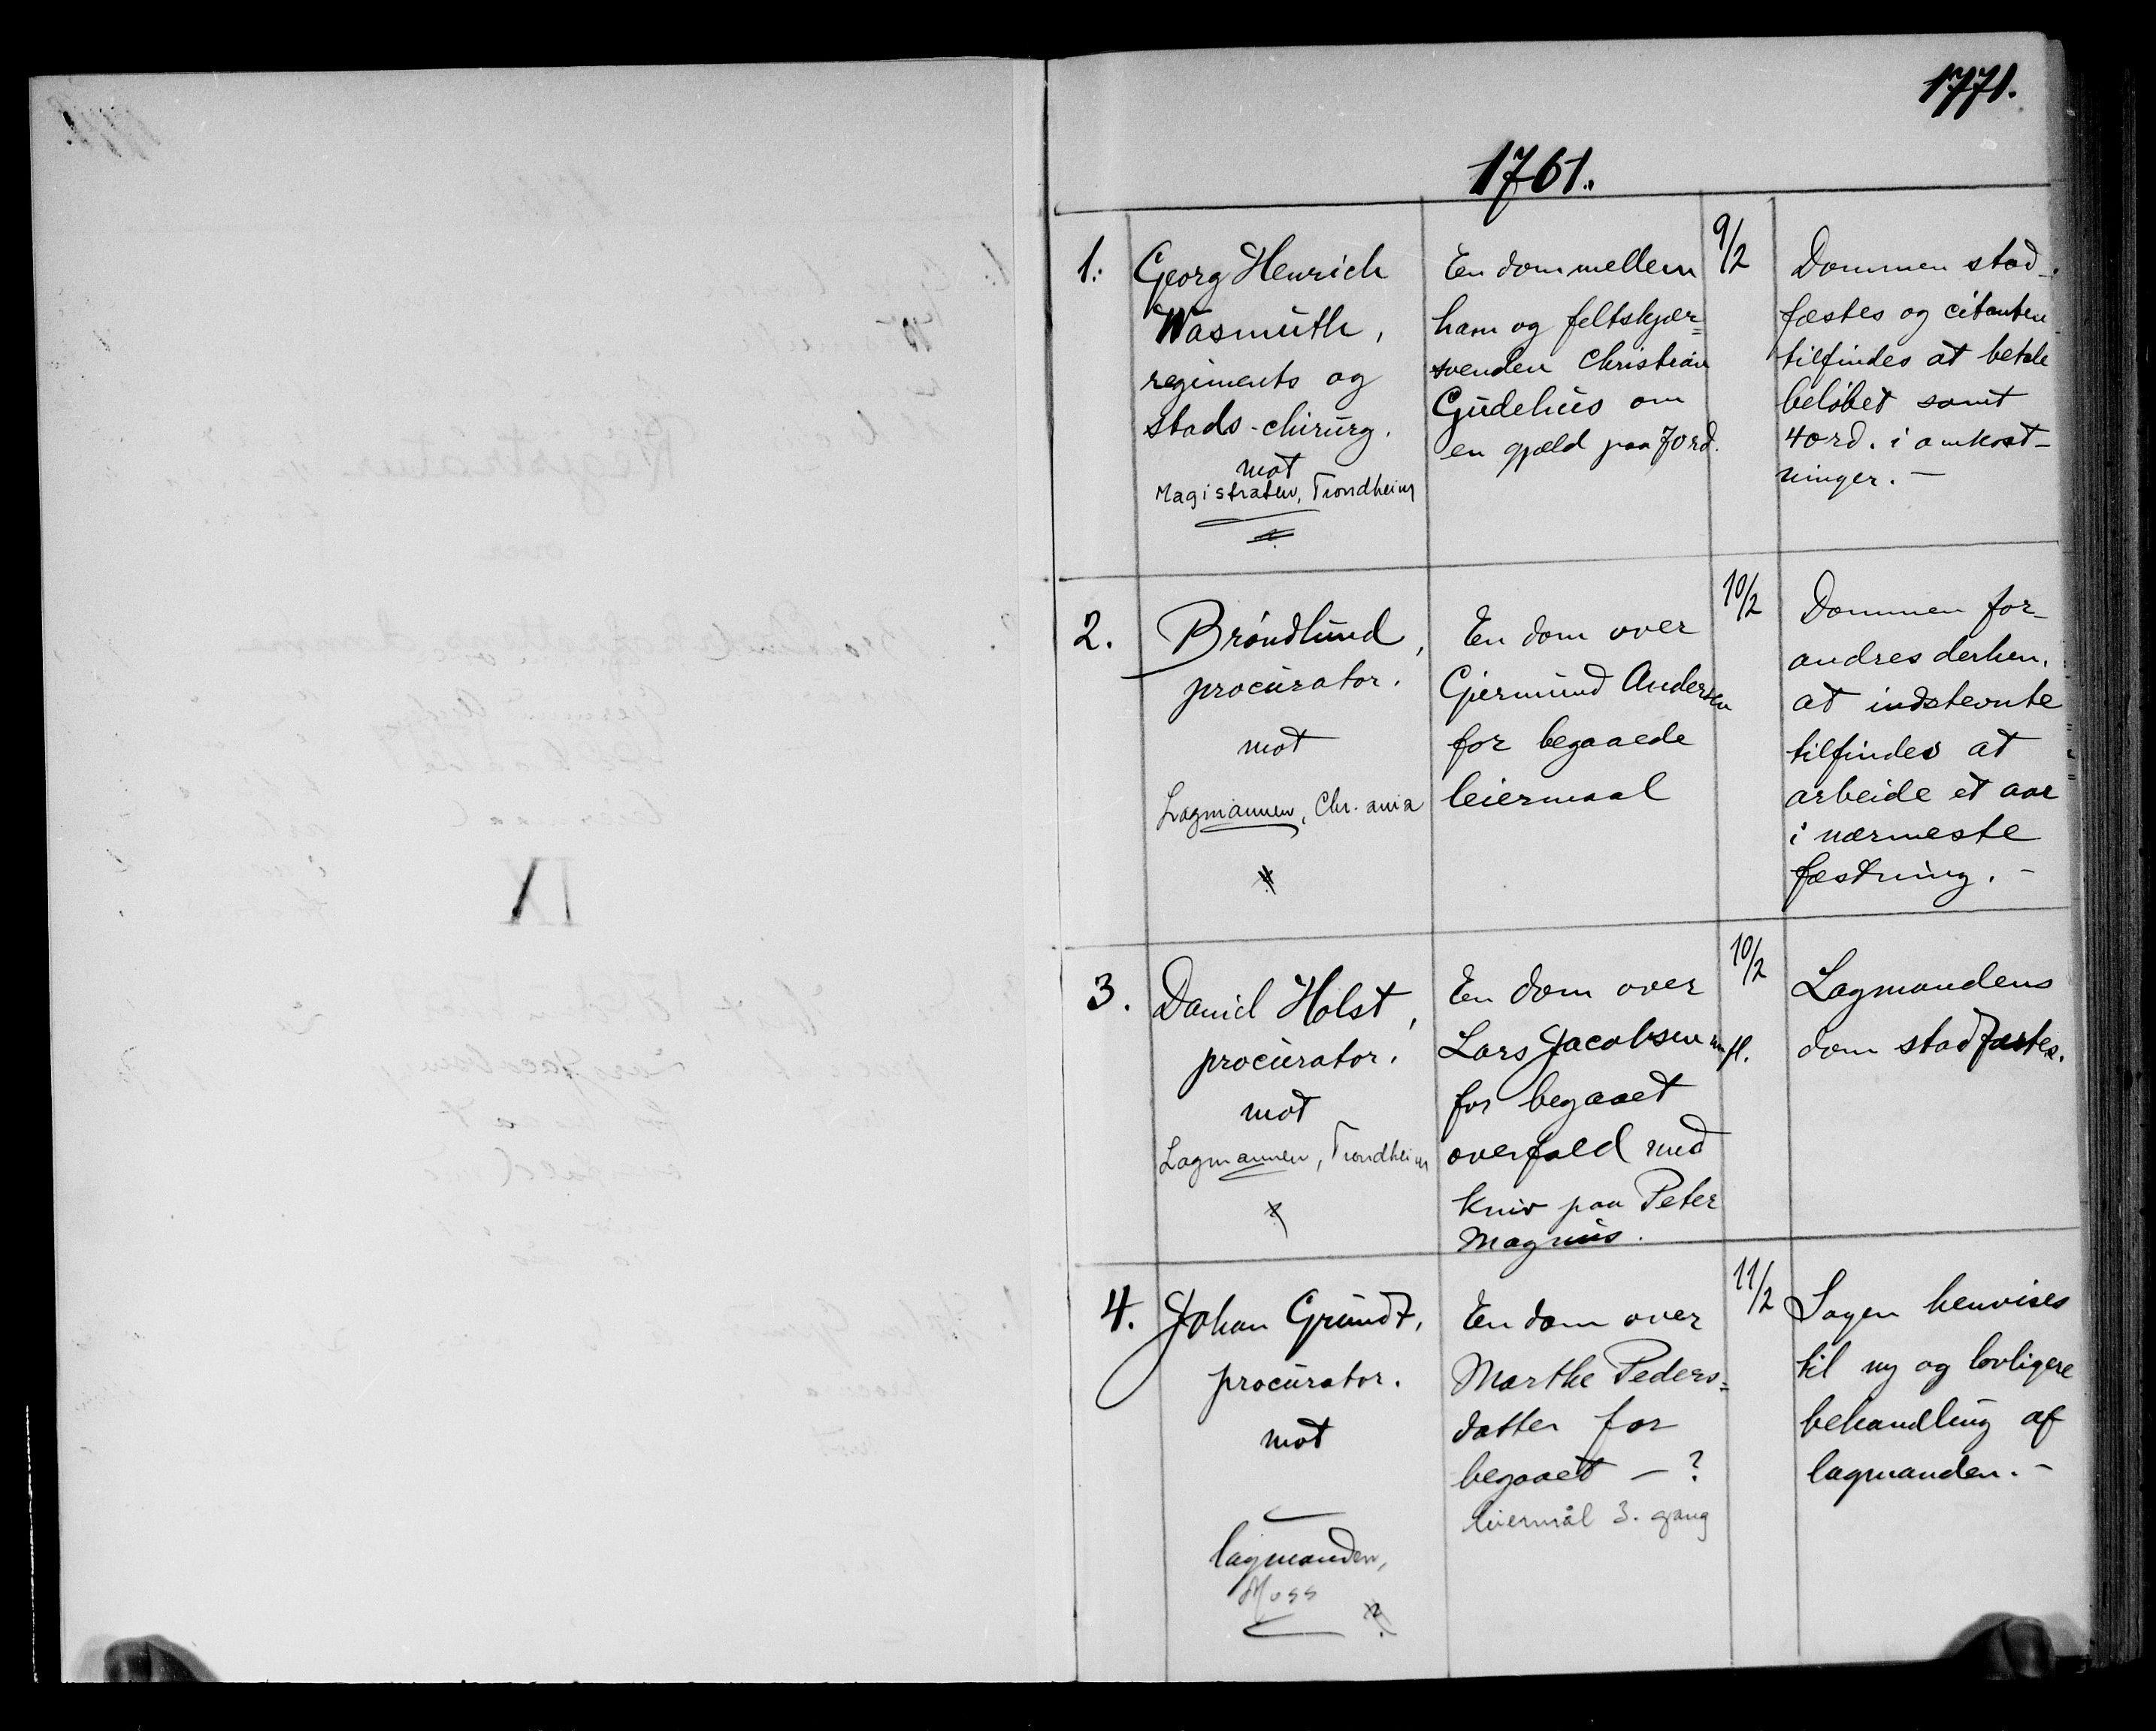 1771.
1761.
1.
Georg Henrich
Wasmuth,
regiments og
stads-chirurg.
mot
Magistraten, Trondheim
En dom mellem
ham og feltskjær=
svenden Christian
Gudehus om
en gjæld paa 70rd.
9/2
Dommen stad-
fæstes og citanten
tilfindes at betale
beløbet samt
40rd. i omkost-
ninger. -
2.
Brøndlund,
procurator.
mot
Lagmannen, Chr.ania
En dom over
Gjermund Andersen
for begaaede
leiermaal
10/2
Dommen for-
andres derhen,
at indstevnte
tilfindes at
arbeide et aar
i nærmeste
fæstning. -
3.
Daniel Holst,
procurator.
mot
Lagmannen, Trondheim
En dom over
Lars Jacobsen m fl.
for begaaet
overfald med
kniv paa Peter
Magnus.
10/2
Lagmandens
dom stadfæstes.
4.
Johan Grundt,
procurator.
mot
lagmanden,
Moss
En dom over
Marthe Peders=
datter for
begaaet - ?
leiermål 3. gang
11/2
Sagen henvises
til ny og lovligere
behandling af
lagmanden. -